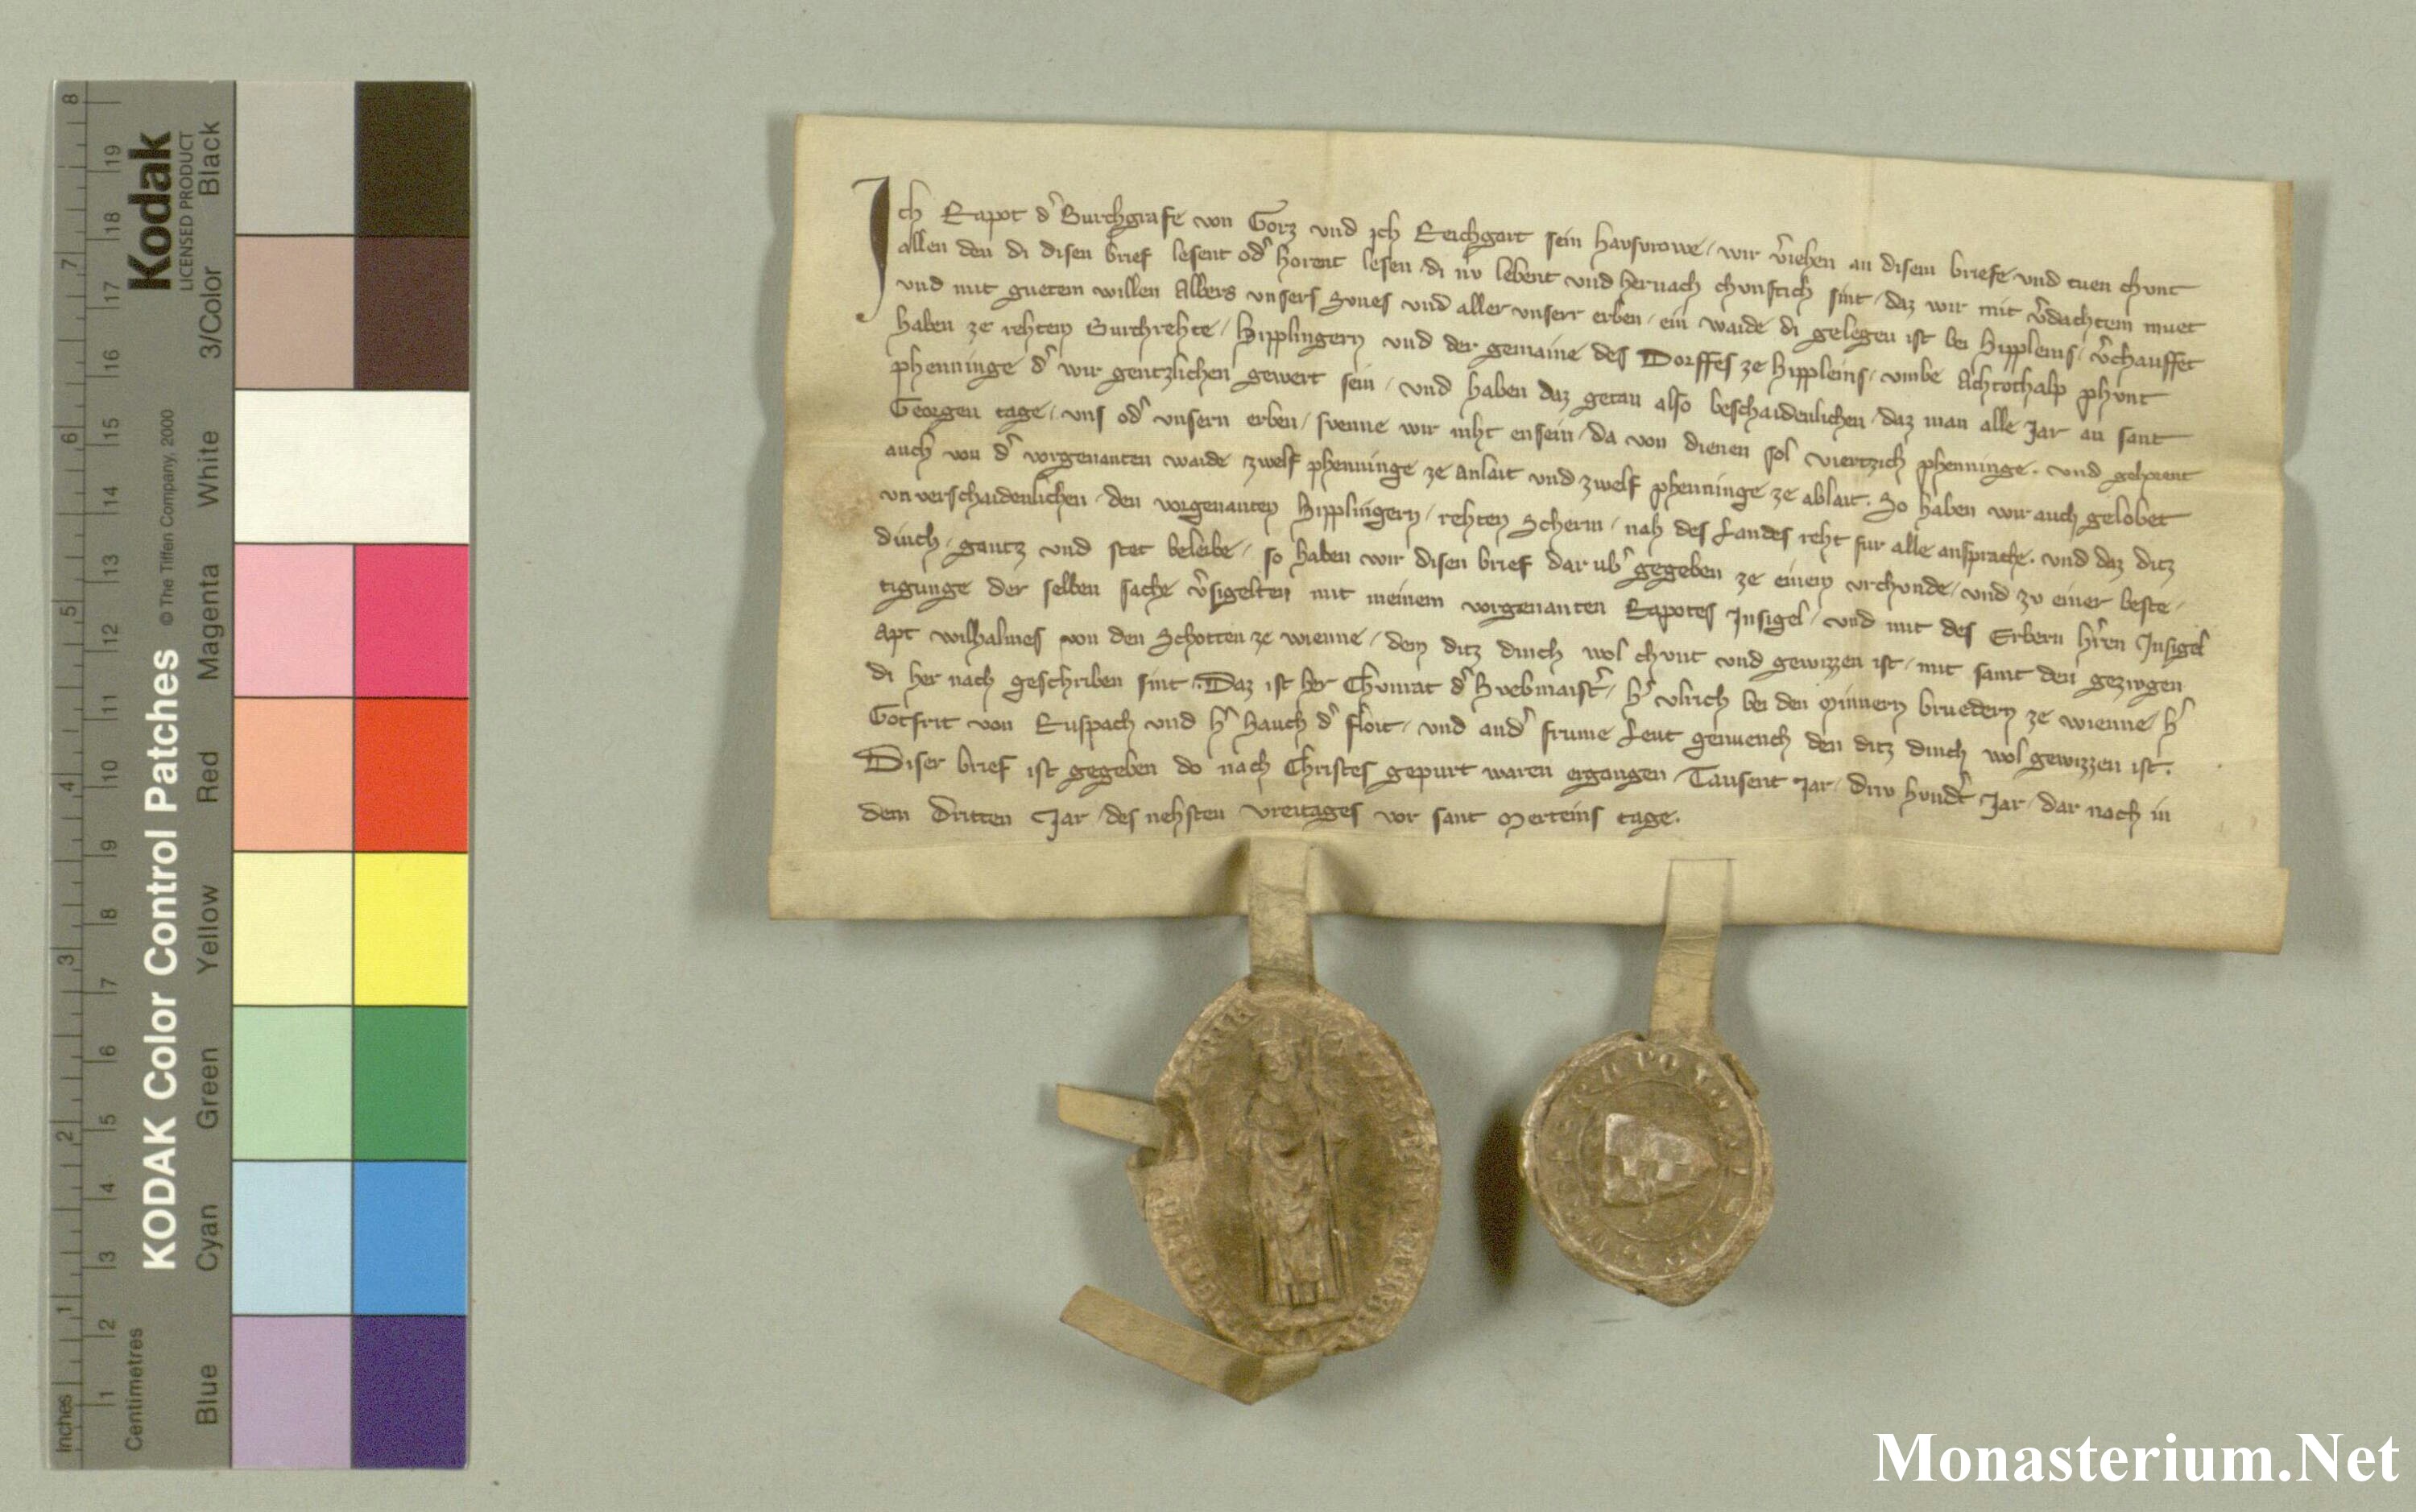 Ich Rapot d' Burchgrafe von Gorz und ich Reichgart sein hausvrowe, wir v'iehen an disem briefe, und tuen chunt
allen den di disen brief lesent od' horent lesen, di nv lebent und hernach chunftich sint, daz wir mit v'dachtem muet
und mit guetem willen Albers unsers Sunes und aller unserr erben, ein waide di gelegen ist bei Hippleins, v'chauffet
haben ze rehtem Burchrehte, Hipplingern und der gemaine des Dorffes ze Hippleins, umbe Achtothalp phunt
phenninge d' wir gentzlichen gewert sein, und haben daz getan also beschaidenlichen, daz man alle Jar an sant
Georgen tage, uns od' unsern erben, swenne wir niht ensein, da von dienen sol viertzich phenninge. und gehorent
auch von d' vorgenanten waide zwelf phenninge ze anlait und zwelf phenninge ze ablait. So haben wir auch gelobet
unverschaidenlichen, den vorgenanten Hipplingern, rehten Scherm, nah des Landes reht fur alle ansprache. und daz ditz
dinch, gantz und stet beleibe, so haben wir disen brief dar ub' gegeben ze einem urchunde, und zu einer beste,
tigunge der selben sache v'sigelten mit meinem vorgenanten Rapotes Insigel, und mit des Erbern h'ren Insigel
Apt wilhalmes von den Schotten ze wienne, dem ditz dinch wol chunt und gewizzen ist, mit samt den gezivgen
di her nach geschriben sint. Daz ist her Chunrat d' Hubmaist', h' ulrich bei den Minnern bruedern ze wienne, h'
Gotfrit von Ruspach und h' Hauch d' floit, und and' frume Leut genuench den ditz dinch wol gewizzen ist.
Diser brief ist gegeben do nach Christes gepurt waren ergangen, Tausent Jar, driv hund't Jar, dar nach in
dem dritten Jar, des nehsten vreitages vor sant Merteins tage.
Kodak
LICENSED PRODUCT
Black
3/Color
White
Magenta
Red
Yellow
Green
Cyan
Blue
KODAK Color Control Patches
© The Tiffen Company, 2000
Centimetres
1 2 3 4 5 6 7 8 9 10 11 12 13 14 15 16 17 18 19
Inches
1 2 3 4 5 6 7 8
Monasterium.Net